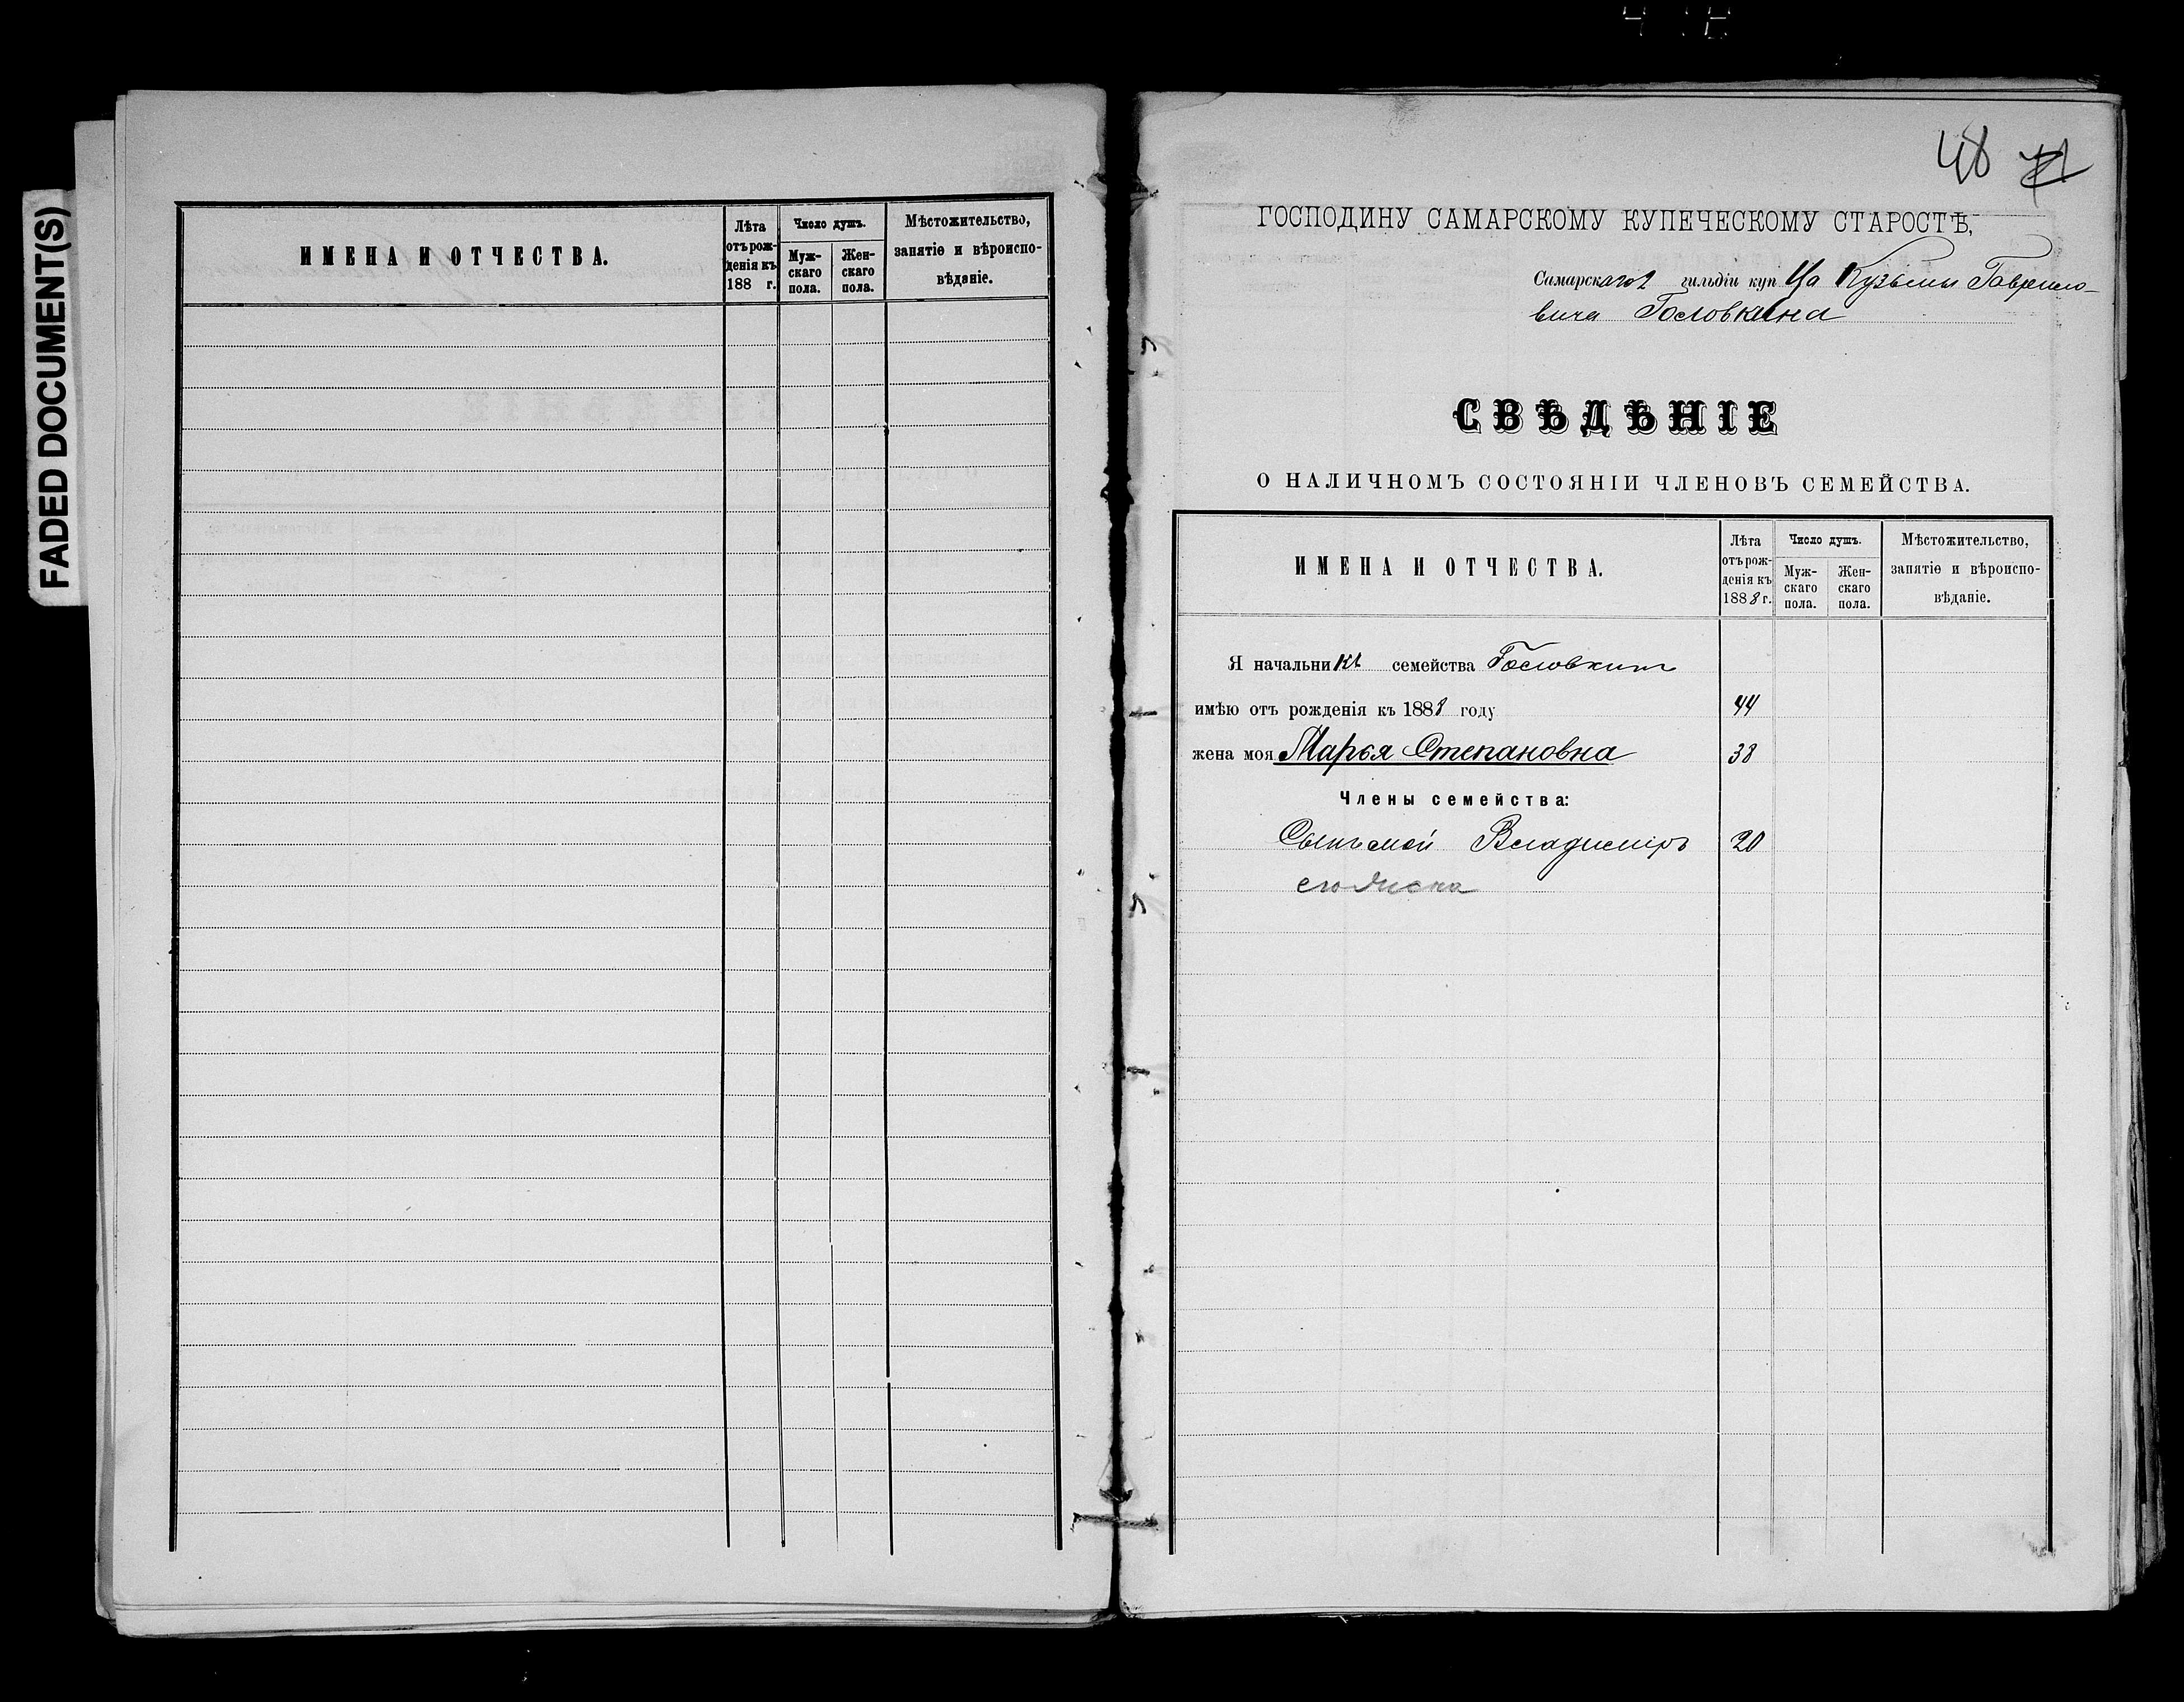 FADED DOCUMENT(S)
ИМЕНА И ОТЧЕСТВА.
Лѣта
отъ рож-
денія къ
188 г.
Число душъ.
Муж-
скаго
пола.
Жен-
скаго
пола.
Мѣстожительство,
занятіе и вѣроиспо-
вѣданіе.
48
ГОСПОДИНУ САМАРСКОМУ КУПЕЧЕСКОМУ СТАРОСТѢ,
Самарскаго 2 гильдіи купца Кузьмы Гаврило-
вича Головкина
СВѢДѢНІЕ
О НАЛИЧНОМЪ СОСТОЯНІИ ЧЛЕНОВЪ СЕМЕЙСТВА.
ИМЕНА И ОТЧЕСТВА.
Лѣта
отъ рож-
денія къ
1888 г.
Число душъ.
Муж-
скаго
пола.
Жен-
скаго
пола.
Мѣстожительство,
занятіе и вѣроиспо-
вѣданіе.
Я начальникъ семейства Головкинъ
имѣю отъ рожденія къ 1888 году 44
жена моя Марья Степановна 38
Члены семейства:
Сынъ мой Владиміръ 20
его жена